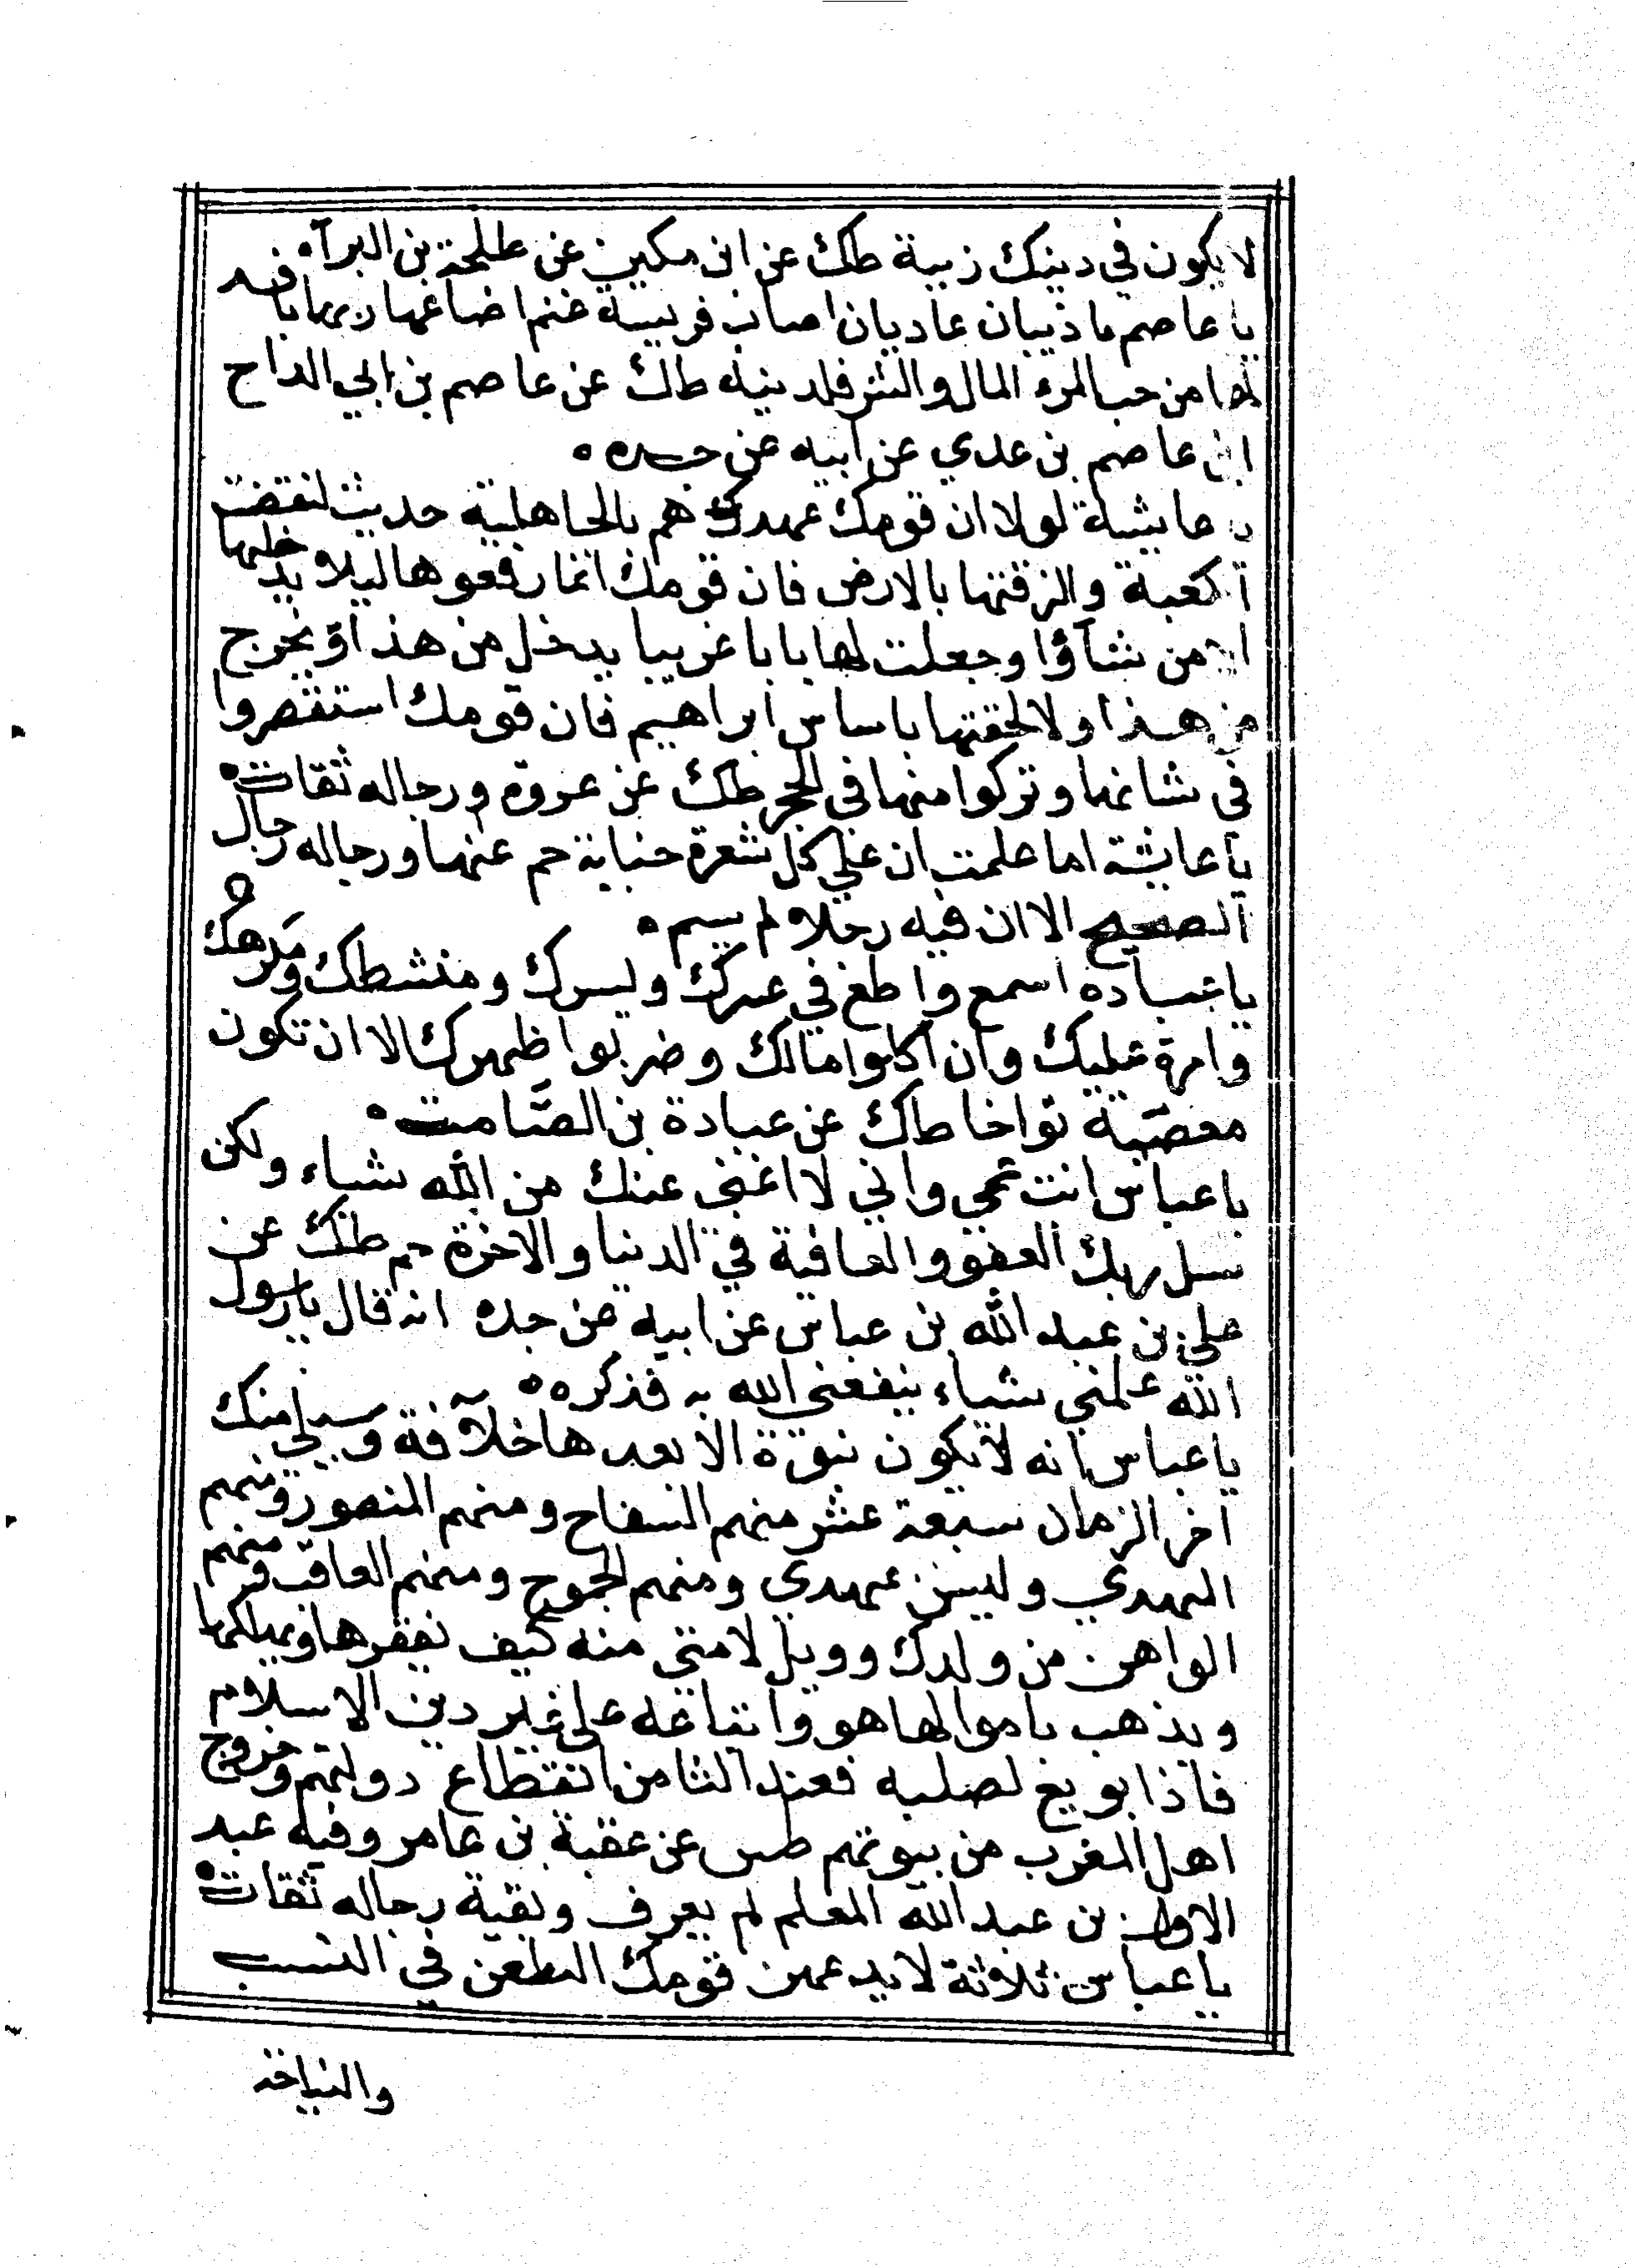 لا يكون في دينك زيبة طك عن ابن مكين عن طلحة بن البراء
يا عاصم ما ذيبان عاديان اصاب فريسة غنم اضاعها ربها بافسد
لها من حب المرء المال والشرف لدينه طك عن عاصم بن ابي الداح
ابن عاصم بن عدي عن ابيه عن جده
يا عايشة لولا ان قومك عهدك هم بالجاهلية حديث لنقضت
الكعبة والزقتها بالارض فان قومك انما رفعوها ليلا يدخلها
الا من شاؤا وجعلت لها بابا غربيا يدخل من هذا ويخرج
من هذا ولا لحقتها باساس ابراهيم فان قومك استقصروا
في شانها وتركوا منها في الحجر طك عن عروة ورجاله ثقات
يا عايشة اما علمت ان علي كل شعرة جنابة حم عنها ورجاله رجال
الصحيح الا ان فيه رجلا لم يسم
يا عبادة اسمع واطع في عسرك ويسرك ومنشطك ومكرهك
واثرة عليك وان اكلوا مالك وضربوا ظهرك الا ان تكون
معصية بواحا طك عن عبادة بن الصامت
يا عباس انت عمي واني لا اغني عنك من الله شياء ولكن
سل ربك العفو والعافية في الدنيا والاخرة حم طك عن
علي بن عبد الله بن عباس عن ابيه عن جده انه قال يا رسول
الله علمني شياء ينفعني الله به فذكره
يا عباس انه لا يكون نبوة الا بعدها خلافة وسيلي منك
اخر الزمان سبعة عشر منهم السفاح ومنهم المنصور ومنهم
المهدي وليس بمهدي ومنهم الجموح ومنهم العاقب ومنهم
الواهن من ولدك وويل لامتي منه كيف يعقرها ويهلكها
ويذهب باموالها هو واتباعه على غير دين الاسلام
فاذا بويع لصلبه فعند الثامن انقطاع دولتهم وخروج
اهل المغرب من بيوتهم طس عن عقبة بن عامر وفيه عبد
الاول بن عبد الله المعلم لم يعرف وبقية رجاله ثقات
يا عباس ثلاثة لا يدعهن قومك الطعن في النسب
والنياحة